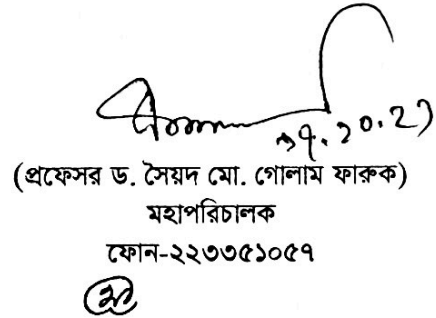 (প্রফেসর ড. সৈয়দ মো. গোলাম ফারুক)
মহাপরিচালক
ফোন-২২৩৩৫১০৫৭